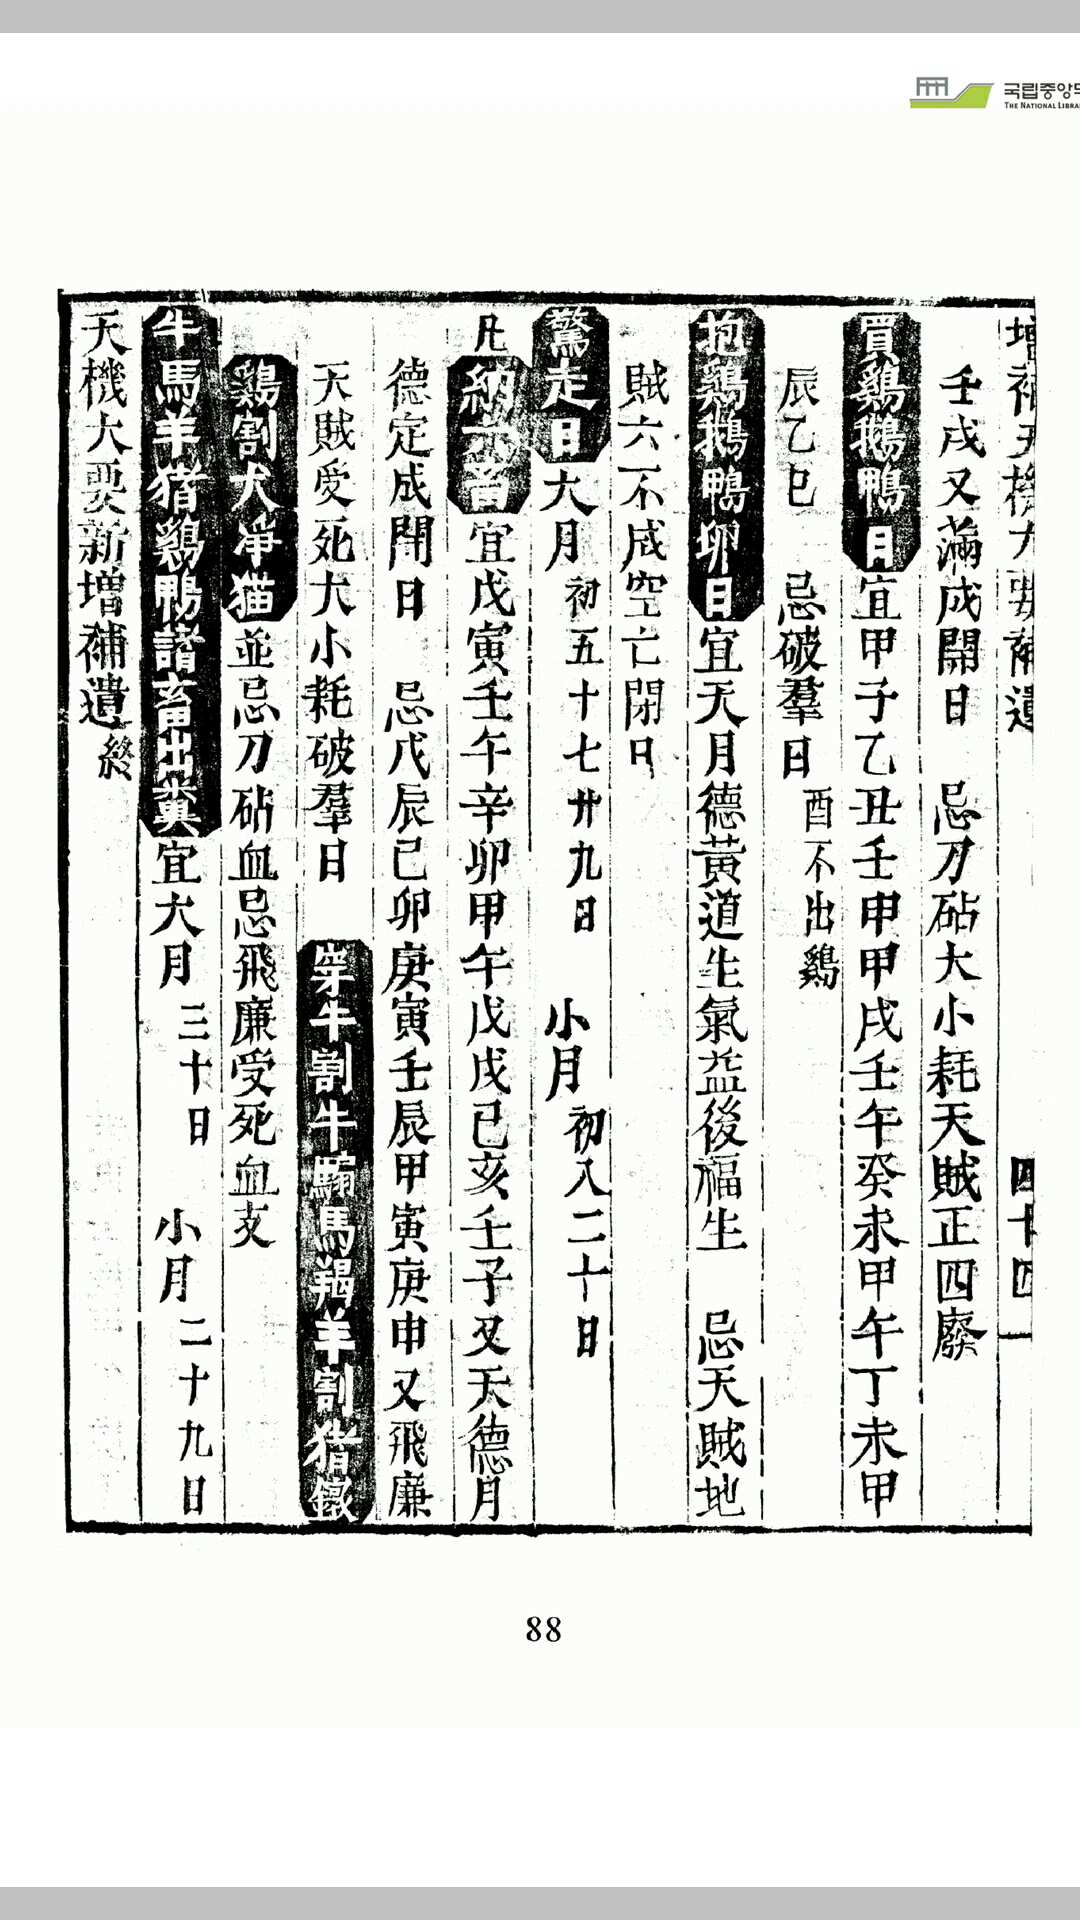 국립중앙도
THE NATIONAL LIBRA
增補天機大要補遺 四十四
壬戌又滿成開日 忌刀砧大小耗天賊正四廢
買鷄鵝鴨日宜甲子乙丑壬申甲戌壬午癸未甲午丁未甲
辰乙巳 忌破羣日 酉不出鷄
抱鷄鵝鴨卵日宜天月德黃道生氣益後福生 忌天賊地
賊六不成空亡閉日
驚走日大月初五十七廿九日 小月初八二十日
凡納六畜宜戊寅壬午辛卯甲午戊戌己亥壬子又天德月
德定成開日 忌戊辰己卯庚寅壬辰甲寅庚申又飛廉
天賊受死大小耗破羣日 穿牛割牛騸馬羯羊割猪鐵
鷄割犬淨猫並忌刀砧血忌飛廉受死血支
牛馬羊猪鷄鴨諸畜出糞宜大月三十日 小月二十九日
天機大要新增補遺終
88